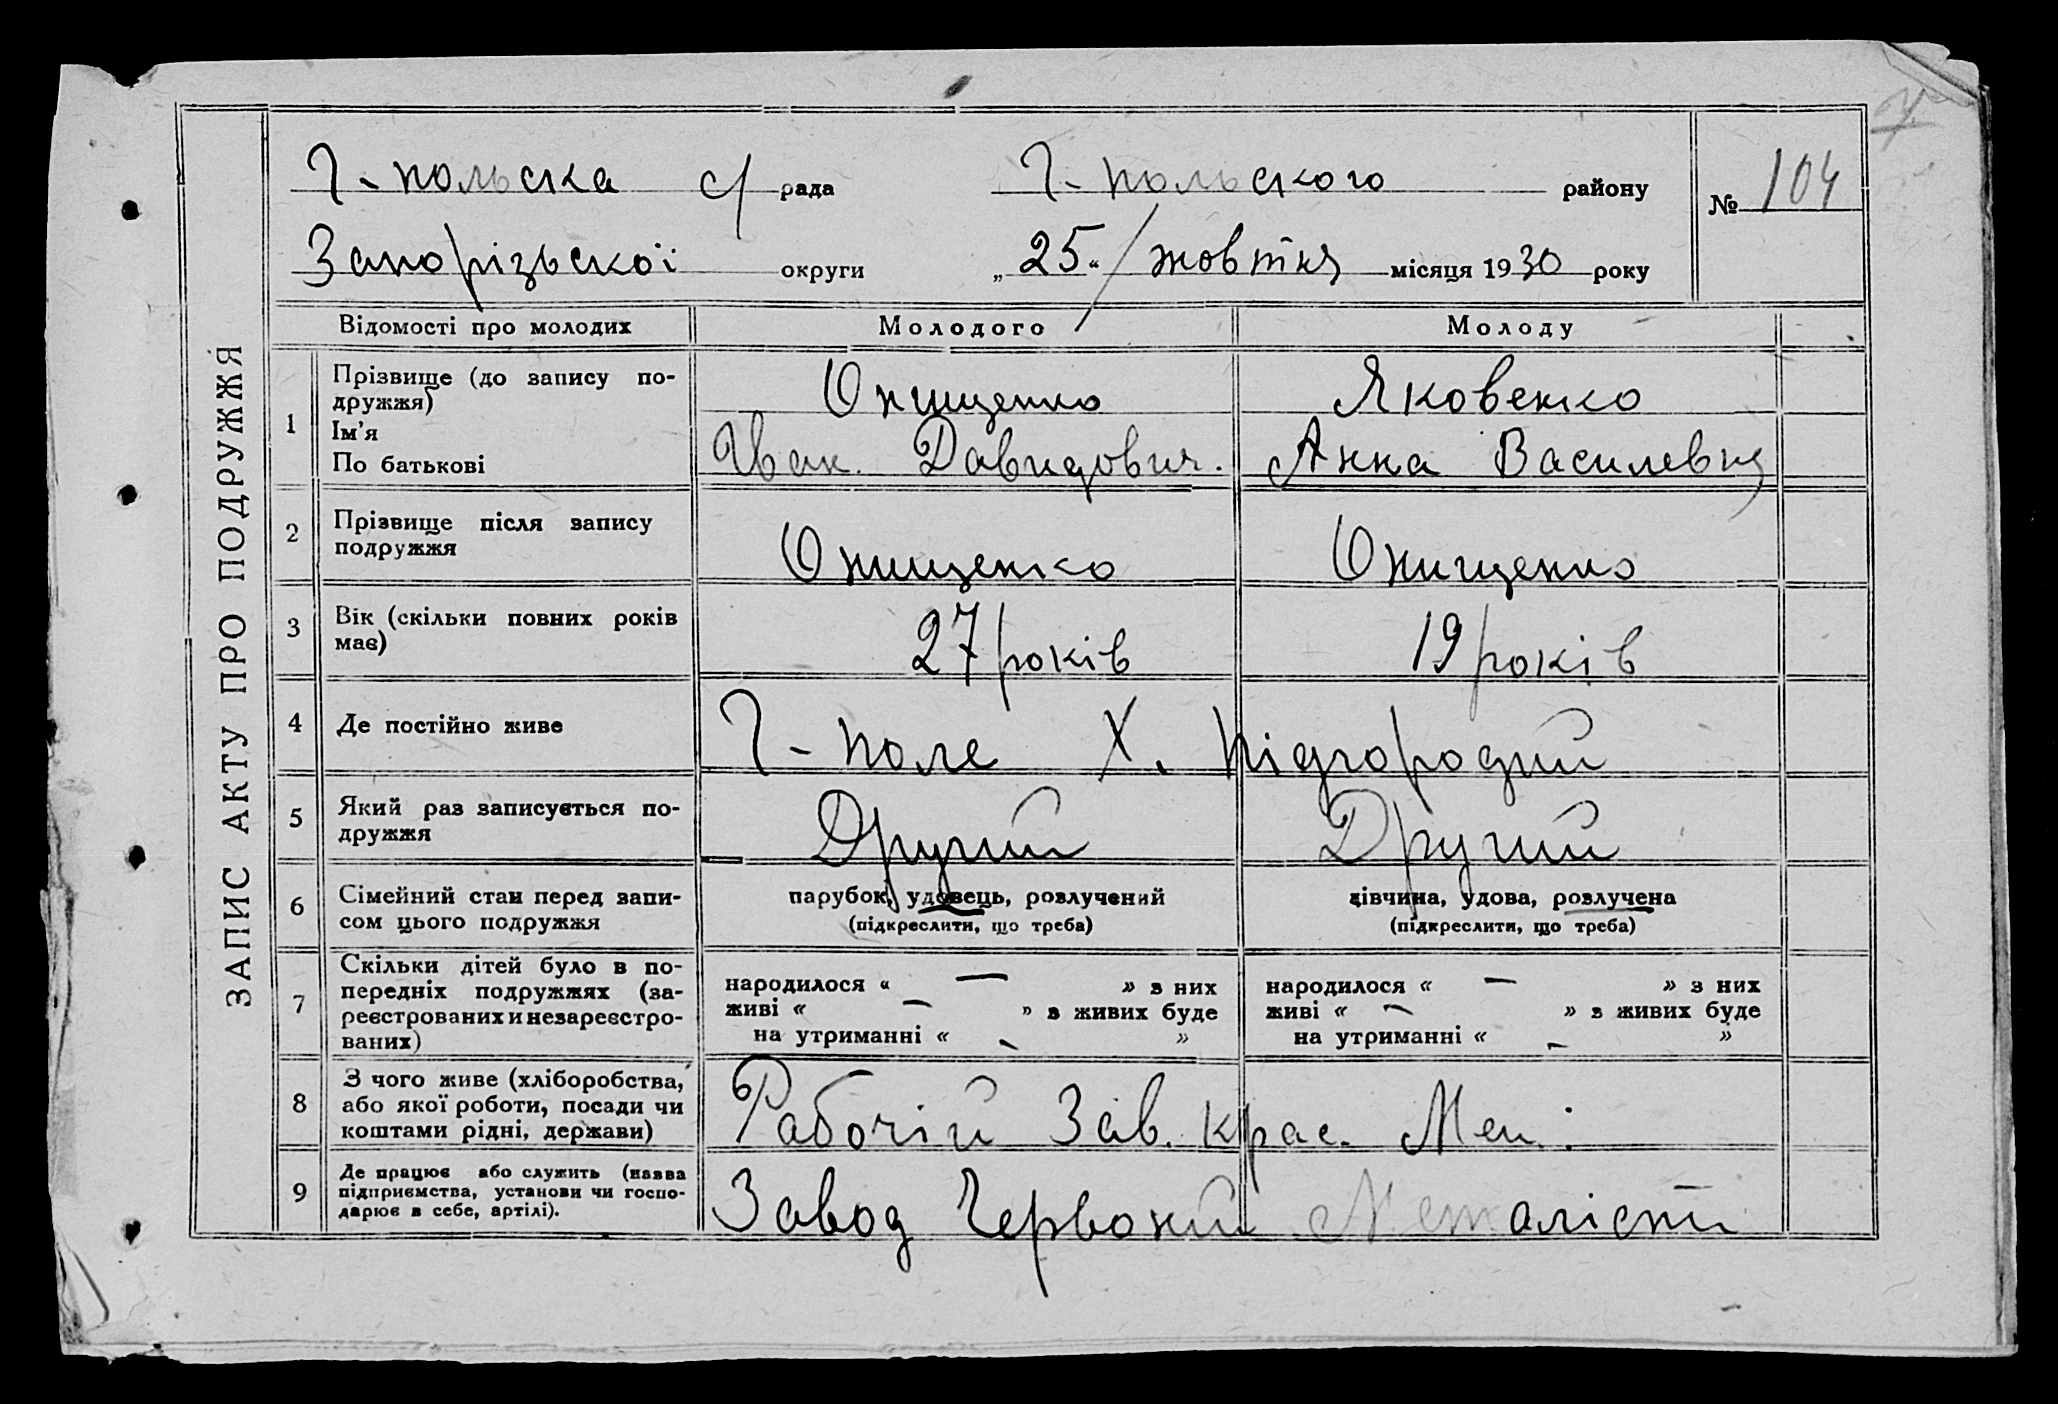 ЗАПИС АКТУ ПРО ПОДРУЖЖЯ
Г-польска с/ рада Г-польского району
№ 104
Запорізьскої округи „25“ жовтня місяця 1930 року
Відомості про молодих Молодого Молоду
1 Прізвище (до запису по-
дружжя) Онищенко Яковенко
Ім'я
По батькові Іван Давидович. Анна Василевна
2 Прізвище після запису
подружжя Онищенко Онищенко
3 Вік (скільки повних років
має) 27 років 19 років
4 Де постійно живе Г-поле Х. Підгородий
5 Який раз записується по-
дружжя Другий Другий
6 Сімейний стан перед запи-
сом цього подружжя
парубок, удовець, розлучений дівчина, удова, розлучена
(підкреслити, що треба) (підкреслити, що треба)
7 Скільки дітей було в по-
передніх подружжях (за-
реєстрованих и незареєстро-
ваних)
народилося « — » з них народилося « — » з них
живі « — » в живих буде живі « — » з живих буде
на утриманні « - » на утриманні « - »
8 З чого живе (хліборобства,
або якої роботи, посади чи
коштами рідні, держави) Рабочій Зав. крас. Мет.
9 Де працює або служить (назва
підприємства, установи чи госпо-
дарює в себе, артілі). Завод Червоний Металіст